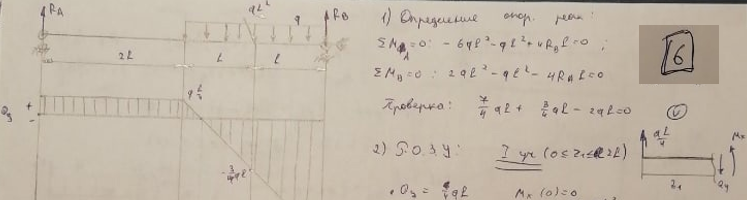 RA
qL²
q
RB
2L
L
L
Qy
+
-
-3/4qL
1) Определение опор. реак:
ΣM_A=0: -6qL²-qL²+4R_BL=0;
ΣM_B=0: 2qL²-qL²-4R_AL=0
Проверка: 7/4qL + 3/4qL - 2qL=0
6
2) Б.О.З.У: I уч (0≤z₁≤2L)
qL/4
Mx
z₁
Qy
Mx(0)=0